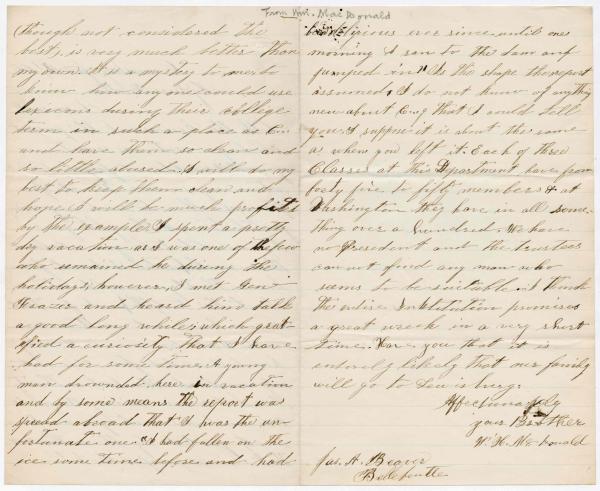 From Wm. MacDonald
though not considered the
best, is very much better than
my own. It is a mystery to me to
know how any one could use
lexicons during their college
term in such a place as
and have them so clean and
so little abused. I will do my
best to keep them clean and
hope I will be much profits
by the example. I spent a pretty
dry vacation as I was one of the few
who remained here during the
holidays, however, I met Gen
and heard him talk
a good long while; which grat-
ified a curiosity that I have
had for some time. A young
man drowned here in vacation
and by some means the report was
spread abroad that I was the un-
fortunate one. I had fallen on the
ice some time before and had
been
religious ever since until one
morning I ran to the dam and
jumped in" is the shape the report
assumed. I do not know of anything
new about that I could tell
you. I suppose it is about the same
as when you left it. Each of three
Classes at this Department have from
forty five to fifty members & at
Washington they have in all some-
thing over a hundred. We have
no President and the trustees
can not find any man who
seems to be suitable. I think
the entire Institution promises
a great wreck in a very short
time. you that it is
entirely likely that our family
will go to
Affectionately
your Brother
W. H. McDonald
Jas. A. Beaver
Bellefonte